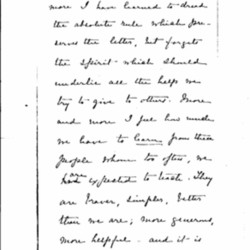 more I have learned to dread
the absolute rule which pre-
serves the letter, but forgets
the spirit which should
underlie all the help we
try to give to others. More
and more I feel how much
we have to learn from these
people whom too often, we
are
had expected to teach. They
are braver, simpler, better
than we are; more generous,
more helpful - and it is